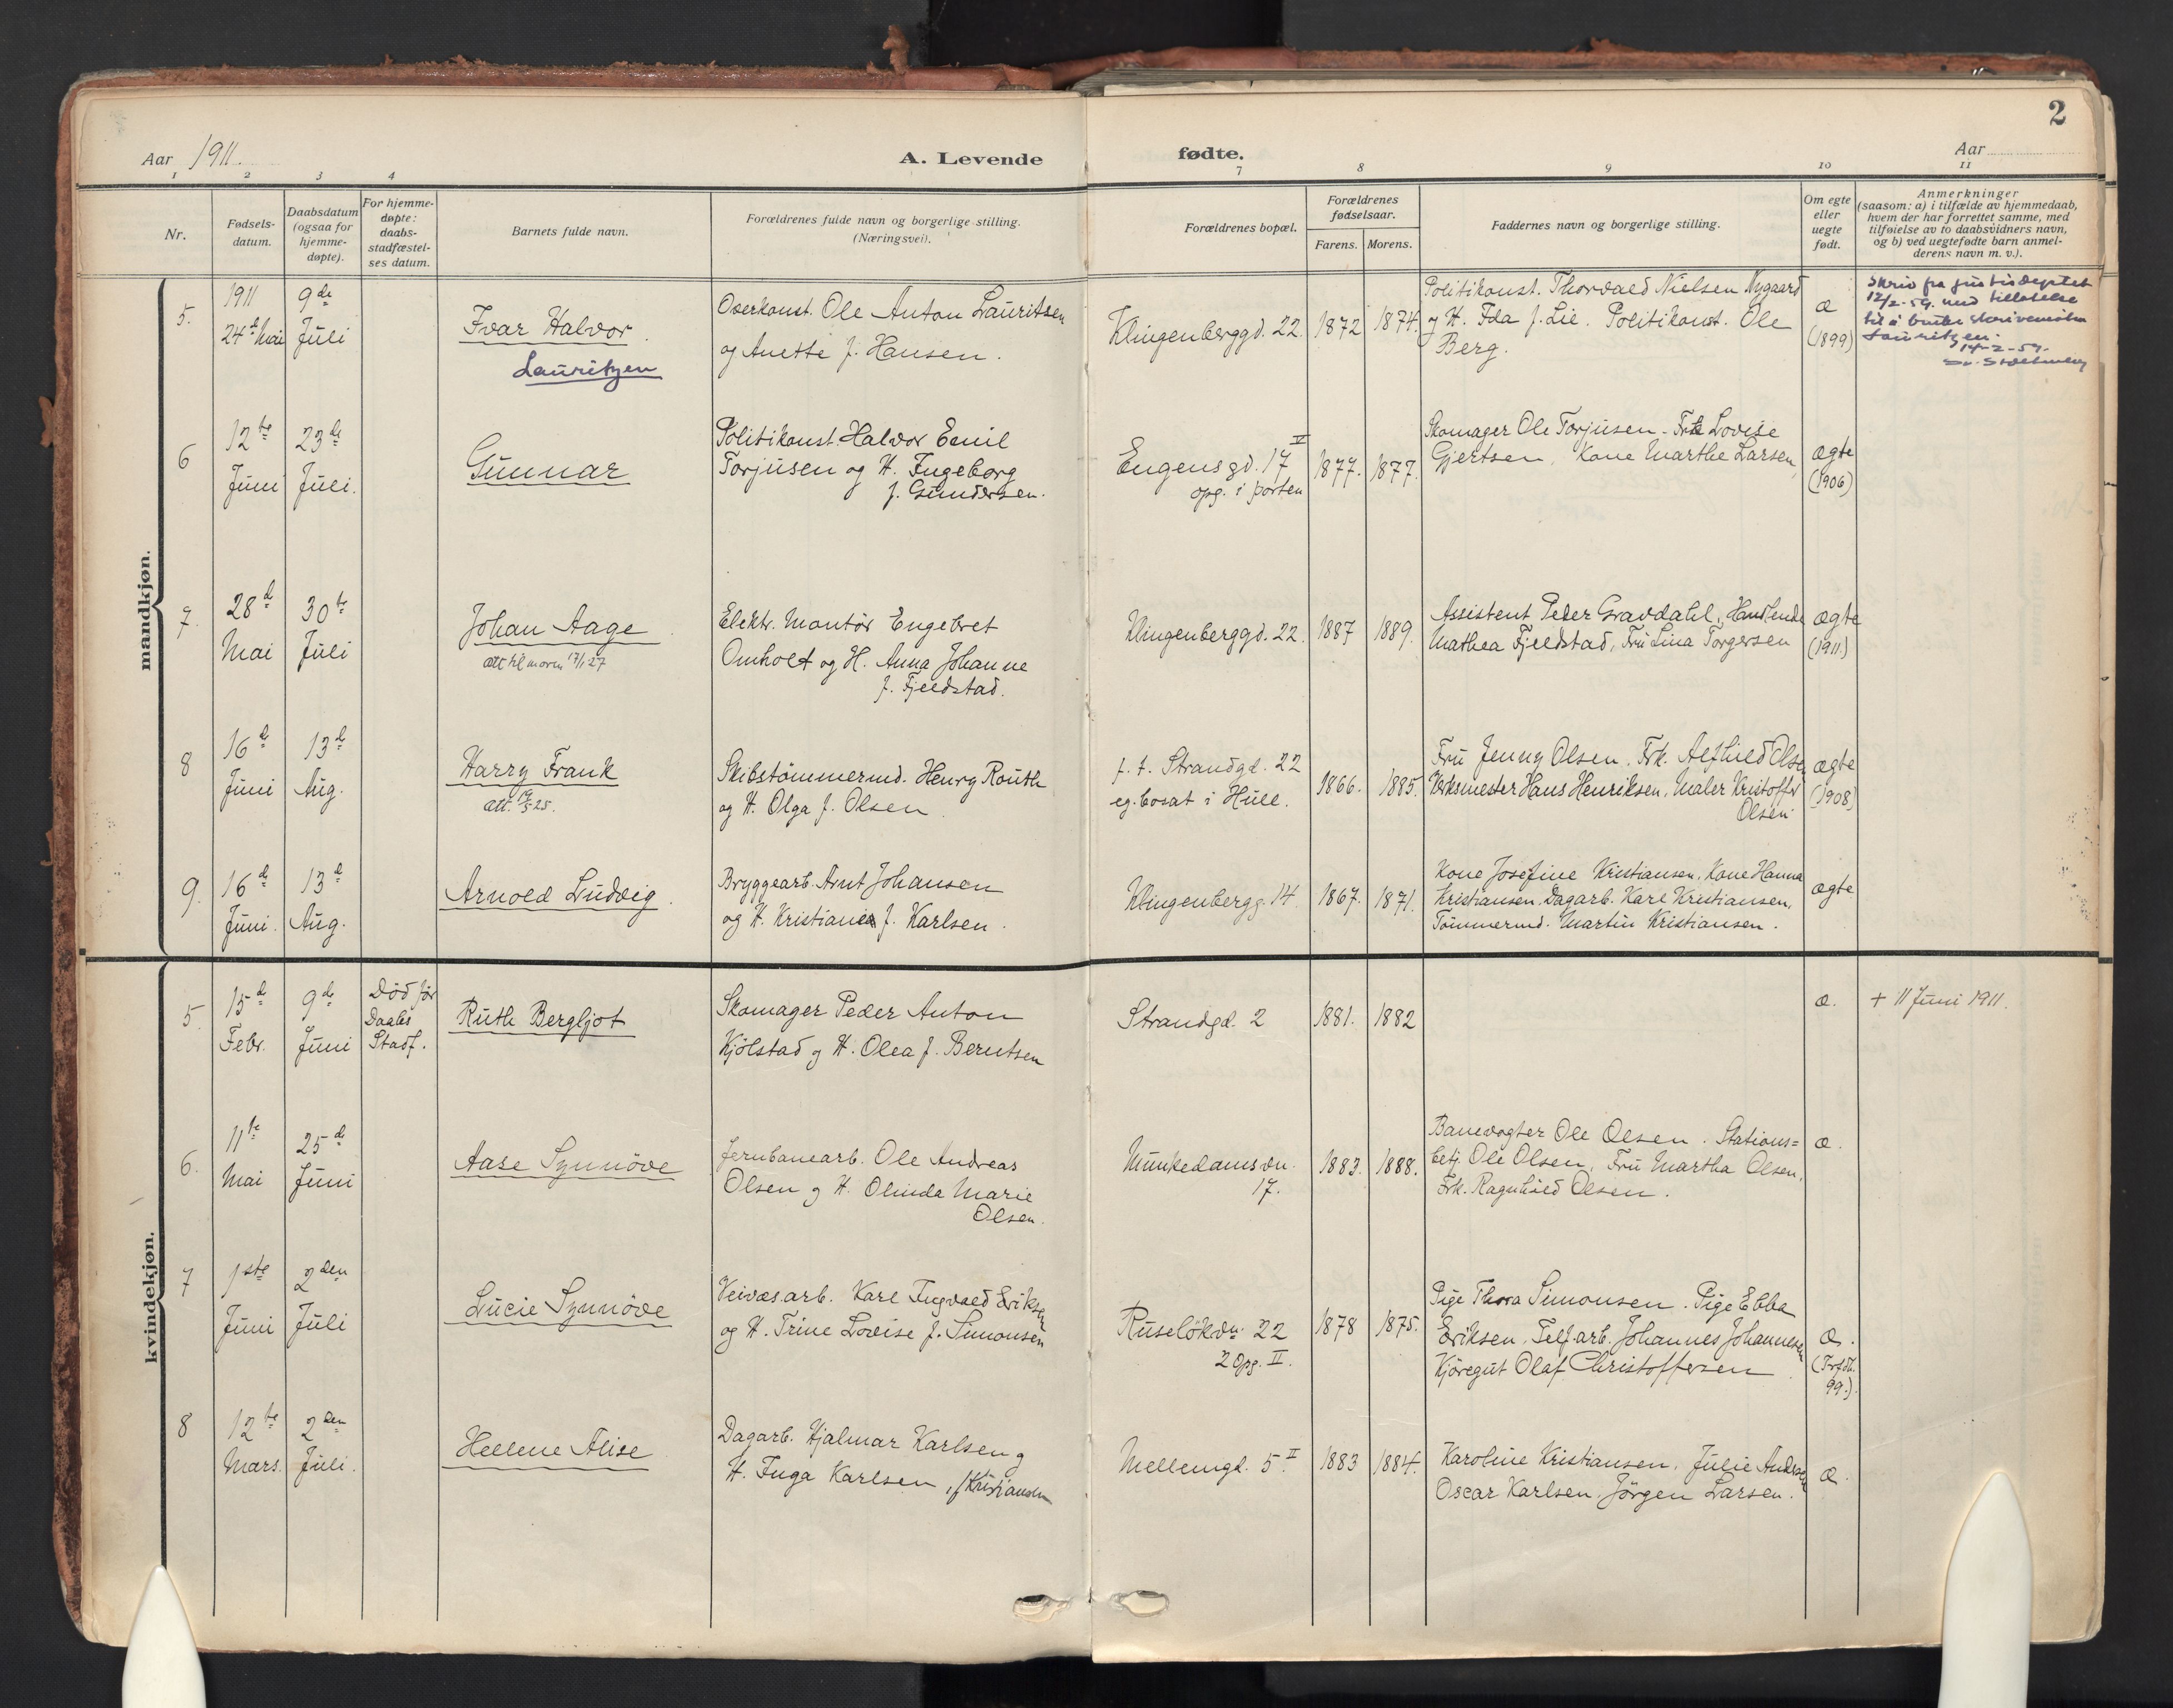 2
Aar 1911.
A. Levende
fødte.
Aar
1 2 3 4
7 8 9 10 11
Nr.
Fødsels-
datum.
Daabsdatum
(ogsaa for
hjemme-
døpte).
For hjemme-
døpte:
daabs-
stadfæstel-
ses datum.
Barnets fulde navn.
Forældrenes fulde navn og borgerlige stilling.
(Næringsvei).
Forældrenes bopæl.
Forældrenes
fødselsaar.
Farens. Morens.
Faddernes navn og borgerlige stilling.
Om egte
eller
uegte
født.
Anmerkninger
(saasom: a) i tilfælde av hjemmedaab,
hvem der har forrettet samme, med
tilføielse av to daabsvidners navn,
og b) ved uegtefødte barn anmel-
derens navn m. v.).
mandkjøn.
5.
1911
24de Mai
9de
Juli
Ivar Halvor
Lauritzen
Overkonst. Ole Anton Lauritsen
og Anette f. Hansen.
Klingenberggd. 22.
1872
1874.
Politikonst. Thorvald Nielsen Nygaard
og H. Ida f. Lie. Politikonst. Ole
Berg.
æ
(1899)
Skriv fra justisdeptet
12/2-59. med tillatelse
til å bruke skrivemåten
Lauritzen.
14-2-59.
6
12te
Juni
23de
Juli.
Gunnar
Politikonst. Halvor Emil
Torjusen og H. Ingeborg
f. Gundersen.
Engensgd. 17 IV
opg. i porten
1877.
1877.
Skomager Ole Torjusen - Frk Lovise
Gjertsen, Kone Marthe Larsen,
ægte
(1906)
7.
28de
Mai
30te
Juli
Johan Aage
att til moren 17/1 27
Elektr. Montør Engebret
Omholt og H. Anna Johanne
f. Fjeldstad.
Klingenberggd. 22.
1887
1889.
Assistent Peder Gravdahl, Handlende
Mathea Fjeldstad, Fru Lina Torgersen
ægte
(1911.)
8
16de
Juni
13de
Aug.
Harry Frank
att. 19/5 25.
Skibstömmermd. Henry Routh
og H. Olga f. Olsen
f. t. Strandgd. 22
eg. bosat i Hull.
1866.
1885.
Fru Jenny Olsen, Frk. Alfhild Olsen
Verksmester Hans Henriksen, Maler Kristoffer
Olsen
ægte
(1908)
9.
16de
Juni.
13de
Aug.
Arnold Ludvig.
Bryggearb. Arnt Johansen
og H. Kristiane f. Karlsen.
Klingenbergg. 14.
1867.
1871.
Kone Josefine Kristiansen, Kone Hanna
Kristiansen, Dagarb. Karl Kristiansen,
Tömmermd. Martin Kristiansen.
ægte
kvindekjøn.
5.
15de
Febr.
9de
Juni
Död för
Daabs
Stadf.
Ruth Bergljot
Skomager Peder Anton
Kjölstad og H. Olea f. Berntsen
Strandgd. 2
1881.
1882
æ.
+ 11 Juni 1911.
6.
11te
Mai
25de
Juni
Aase Synnöve
Jernbanearb. Ole Andreas
Olsen og H. Olinda Marie
Olsen.
Munkedamsvn.
17.
1883.
1888.
Banevogter Ole Olsen. Stations=
betj. Ole Olsen, Fru Martha Olsen,
Frk. Ragnhild Olsen.
æ.
7
1ste
Juni
2den
Juli
Lucie Synnöve
Veivæs.arb. Karl Ingvald Eriksen
og H. Trine Lovise f. Simonsen
Ruselökvn. 22
2 Opg. II.
1878
1875.
Pige Thora Simonsen. Pige Ebba
Eriksen, Telf.arb. Johannes Johannesen
Kjöregut Olaf Christoffersen
æ.
(Trfdk.
99.)
8
12te
Mars.
2den
Juli.
Hellene Alise
Dagarb. Hjalmar Karlsen og
H. Inga Karlsen, f. Kristiansen
Mellemgd. 5. II
1883
1884.
Karoline Kristiansen, Julie Andersen
Oscar Karlsen, Jörgen Larsen.
æ.